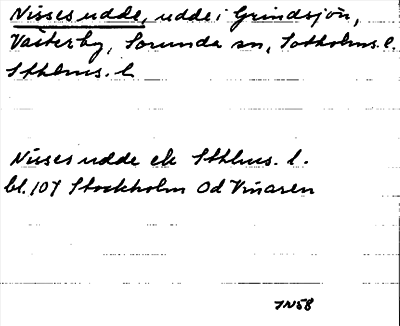 Nissesudde, udde i Grindsjön,
Västerby, Sorunda sn, Sotholms. l.
Sthlms. l
Nissesudde ek Sthlms. l.
bl. 107 Stockholm Od Vinaren
JN58